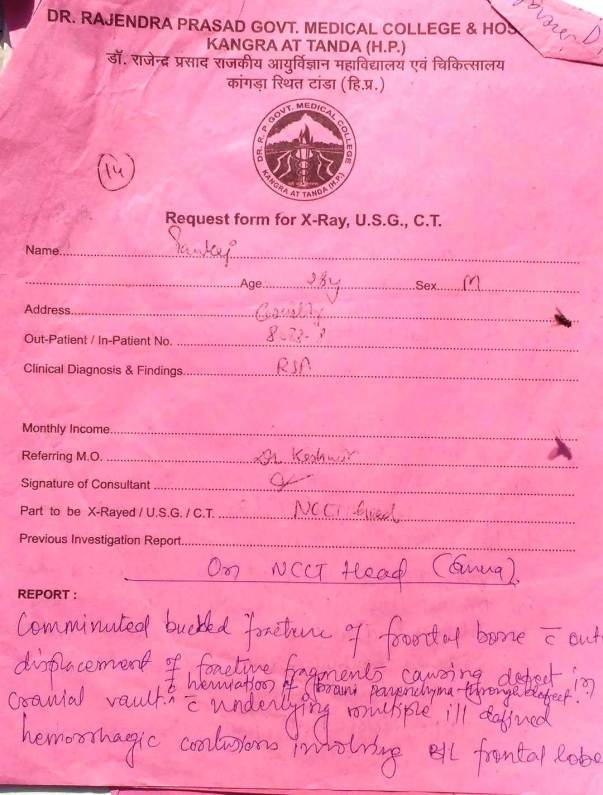 DR. RAJENDRA PRASAD GOVT. MEDICAL COLLEGE & HOS
KANGRA AT TANDA (H.P.)
डॉ. राजेन्द्र प्रसाद राजकीय आयुर्विज्ञान महाविद्यालय एवं चिकित्सालय
कांगड़ा स्थित टांडा (हि.प्र.)
DR. R. P. GOVT. MEDICAL COLLEGE
KANGRA AT TANDA (H.P.)
14
Request form for X-Ray, U.S.G., C.T.
Name
Age 28y Sex M
Address
Out-Patient / In-Patient No.
Clinical Diagnosis & Findings RSA
Monthly Income
Referring M.O. Dr
Signature of Consultant
Part to be X-Rayed / U.S.G. / C.T. NCCT head
Previous Investigation Report
On NCCT Head
REPORT :
Comminuted buckled fracture of frontal bone c̄ out
displacement of fractive fragments causing defect in
c̄ herniation of brain parenchyma defect
cranial vault. c̄ underlying multiple ill defined
hemorrhagic contusions involving B/L frontal lobe